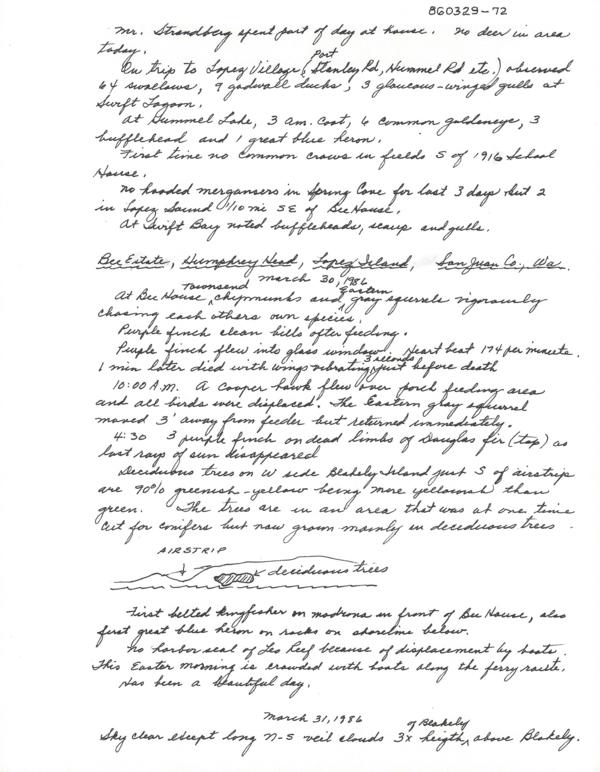 860329-72
Mr. Strandberg spent part of day at house. No deer in area
today.
On trip to Lopez Village (Port Stanley Rd, Hummel Rd etc.) observed
64 swallows, 9 gadwall ducks, 3 glaucous-winged gulls at
Swift Lagoon.
At Hummel Lake, 3 Am. Coot, 6 common goldeneye, 3
bufflehead and 1 great blue heron.
First time no common crows in fields S of 1916 School
House.
No hooded mergansers in Spring Cove for last 3 days but 2
in Lopez Sound 1/10 mi SE of Bee House.
At Swift Bay noted buffleheads, scaup and gulls.
Bee Estate, Humphrey Head, Lopez Island, San Juan Co., Wa.
March 30, 1986
At Bee House, Townsend chipmunks and Eastern gray squirrels vigorously
chasing each others own species.
Purple finch clean bills after feeding.
Purple finch flew into glass window. Heart beat 174 per minute.
1 min later died with wings vibrating 3 seconds just before death
10:00 A.M. A Cooper hawk flew over porch feeding area
and all birds were displaced. The Eastern gray squirrel
moved 3' away from feeder but returned immediately.
4:30 3 purple finch on dead limbs of Douglas fir (top) as
last rays of sun disappeared
Deciduous trees on W side Blakely Island just S of airstrip
are 90% greenish-yellow being more yellowish than
green. The trees are in an area that was at one time
cut for conifers but now grown mainly in deciduous trees.
AIRSTRIP
deciduous trees
First belted kingfisher on madrona in front of Bee House, also
first great blue heron on rocks on shoreline below.
No harbor seal of Leo Reef because of displacement by boats.
This Easter morning is crowded with boats along the ferry route.
Has been a beautiful day.
March 31, 1986
Sky clear except long N-S veil clouds 3x heigth of Blakely above Blakely.